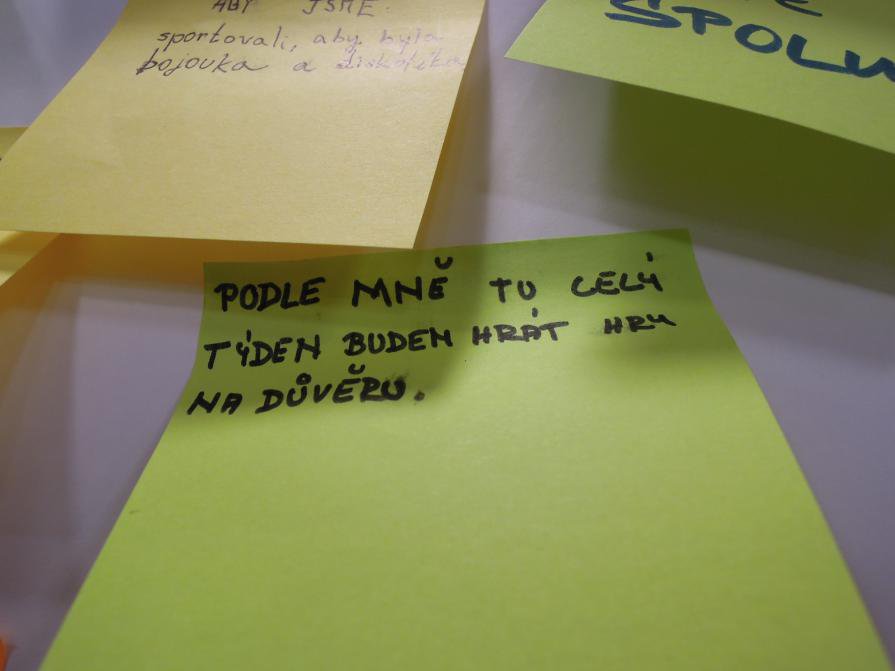 ABY JSME
sportovali, aby byla
bojovka a diskotéka
SPOLU
PODLE MNĚ TU CELÝ
TÝDEN BUDEM HRÁT HRY
NA DŮVĚRU.